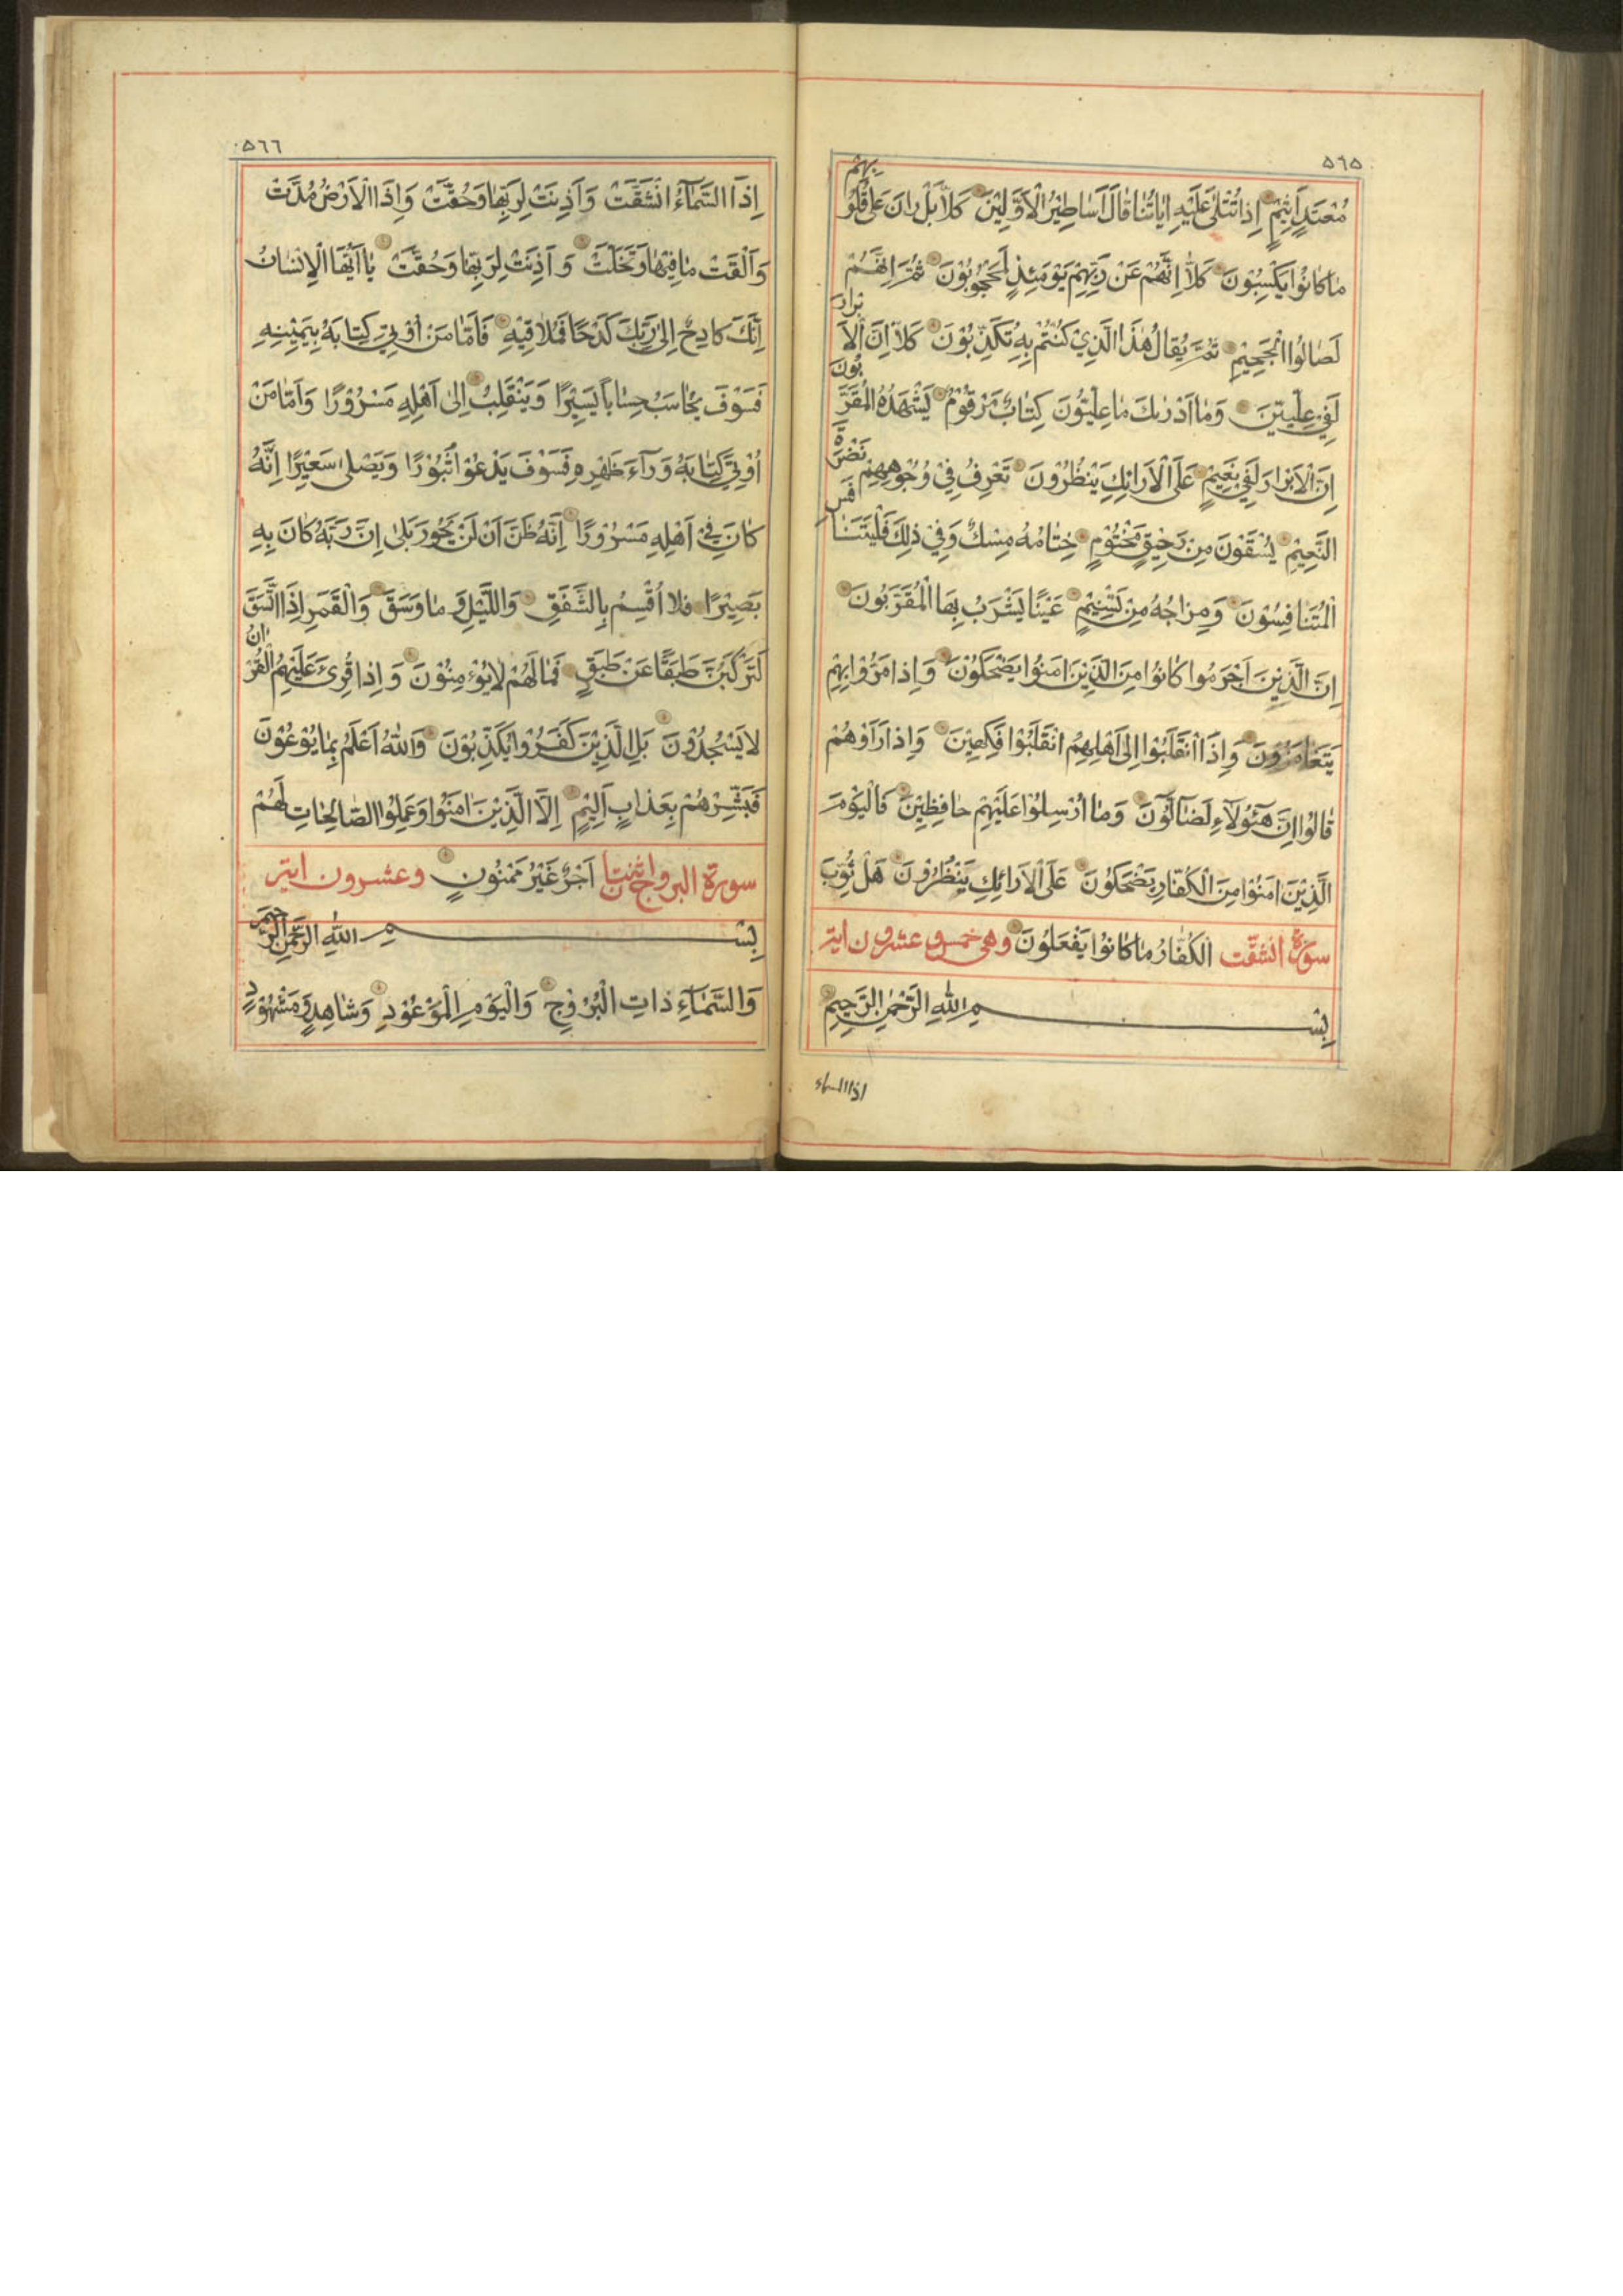 ٥٦٥
مُعْتَدٍ اَثِيْمٍ اِذا تُتْلىٰ عَلَيْهِ اٰياتُنا قالَ اَساطِيْرُ الْاَوَّلِيْنَ كَلاّ بَلْ رانَ عَلىٰ قُلُوْبِهِمْ
ما كانُوا يَكْسِبُوْنَ كَلاّ اِنَّهُمْ عَنْ رَبِّهِمْ يَوْمَئِذٍ لَمَحْجُوْبُوْنَ ثُمَّ اِنَّهُمْ
لَصالُوا الْجَحِيْمِ ثُمَّ يُقالُ هٰذَا الَّذِيْ كُنْتُمْ بِهِ تُكَذِّبُوْنَ كَلاّ اِنَّ الْاَبْرارَ
لَفِيْ عِلِّيِّيْنَ وَما اَدْرٰىكَ ما عِلِّيُّوْنَ كِتابٌ مَرْقُوْمٌ يَشْهَدُهُ الْمُقَرَّبُوْنَ
اِنَّ الْاَبْرارَ لَفِيْ نَعِيْمٍ عَلَى الْاَرائِكِ يَنْظُرُوْنَ تَعْرِفُ فِيْ وُجُوْهِهِمْ نَضْرَةَ
النَّعِيْمِ يُسْقَوْنَ مِنْ رَحِيْقٍ مَخْتُوْمٍ خِتامُهُ مِسْكٌ وَفِيْ ذٰلِكَ فَلْيَتَنافَسِ
الْمُتَنافِسُوْنَ وَمِزاجُهُ مِنْ تَسْنِيْمٍ عَيْنًا يَشْرَبُ بِهَا الْمُقَرَّبُوْنَ
اِنَّ الَّذِيْنَ اَجْرَمُوا كانُوا مِنَ الَّذِيْنَ اٰمَنُوا يَضْحَكُوْنَ وَاِذا مَرُّوْا بِهِمْ
يَتَغامَزُوْنَ وَاِذَا انْقَلَبُوْا اِلىٰ اَهْلِهِمُ انْقَلَبُوْا فَكِهِيْنَ وَاِذا رَاَوْهُمْ
قالُوا اِنَّ هٰٓؤُلاۤءِ لَضاۤلُّوْنَ وَما اُرْسِلُوْا عَلَيْهِمْ حافِظِيْنَ فَالْيَوْمَ
الَّذِيْنَ اٰمَنُوْا مِنَ الْكُفّارِ يَضْحَكُوْنَ عَلَى الْاَرائِكِ يَنْظُرُوْنَ هَلْ ثُوِّبَ
سورة انشقّت الْكُفّارُ ما كانُوْا يَفْعَلُوْنَ وهى خمس و عشرون اية
بِسْمِ اللهِ الرَّحْمٰنِ الرَّحِيْمِ
اذا السماء
٥٦٦
اِذَا السَّماۤءُ انْشَقَّتْ وَاَذِنَتْ لِرَبِّها وَحُقَّتْ وَاِذَا الْاَرْضُ مُدَّتْ
وَاَلْقَتْ ما فِيْها وَتَخَلَّتْ وَاَذِنَتْ لِرَبِّها وَحُقَّتْ يا اَيُّهَا الْاِنْسانُ
اِنَّكَ كادِحٌ اِلىٰ رَبِّكَ كَدْحًا فَمُلاقِيْهِ فَاَمّا مَنْ اُوْتِيَ كِتابَهُ بِيَمِيْنِهِ
فَسَوْفَ يُحاسَبُ حِسابًا يَسِيْرًا وَيَنْقَلِبُ اِلىٰ اَهْلِهِ مَسْرُوْرًا وَاَمّا مَنْ
اُوْتِيَ كِتابَهُ وَرآءَ ظَهْرِهِ فَسَوْفَ يَدْعُوْا ثُبُوْرًا وَيَصْلىٰ سَعِيْرًا اِنَّهُ
كانَ فِيْ اَهْلِهِ مَسْرُوْرًا اِنَّهُ ظَنَّ اَنْ لَنْ يَحُوْرَ بَلىٰ اِنَّ رَبَّهُ كانَ بِهِ
بَصِيْرًا فَلا اُقْسِمُ بِالشَّفَقِ وَاللَّيْلِ وَما وَسَقَ وَالْقَمَرِ اِذَا اتَّسَقَ
لَتَرْكَبُنَّ طَبَقًا عَنْ طَبَقٍ فَما لَهُمْ لا يُؤْمِنُوْنَ وَاِذا قُرِئَ عَلَيْهِمُ الْقُرْاٰنُ
لا يَسْجُدُوْنَ بَلِ الَّذِيْنَ كَفَرُوْا يُكَذِّبُوْنَ وَاللهُ اَعْلَمُ بِما يُوْعُوْنَ
فَبَشِّرْهُمْ بِعَذابٍ اَلِيْمٍ اِلَّا الَّذِيْنَ اٰمَنُوْا وَعَمِلُوا الصّالِحاتِ لَهُمْ
سورة البروج اثنتا اَجْرٌ غَيْرُ مَمْنُوْنٍ وعشرون اية
بِسْمِ اللهِ الرَّحْمٰنِ الرَّحِيْمِ
وَالسَّمَاۤءِ ذاتِ الْبُرُوْجِ وَالْيَوْمِ الْمَوْعُوْدِ وَشاهِدٍ وَمَشْهُوْدٍ